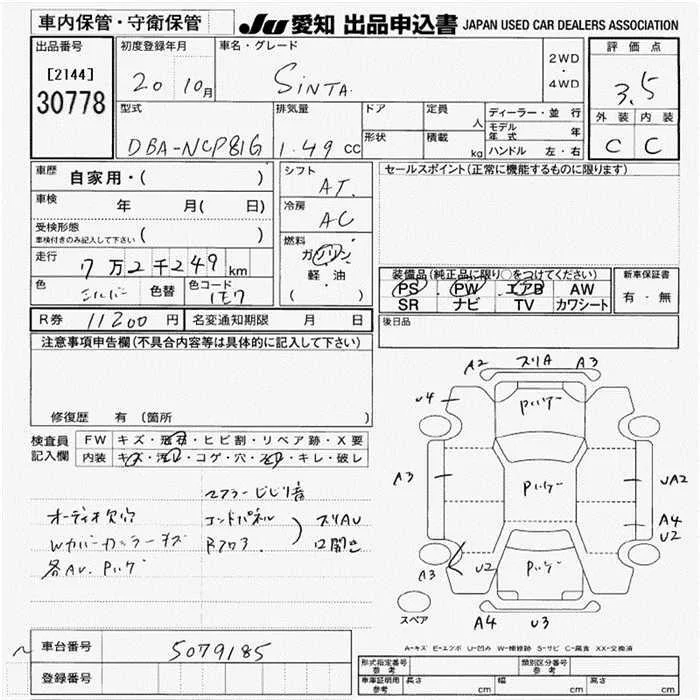 車内保管・守衛保管 JU 愛知 出品申込書 JAPAN USED CAR DEALERS ASSOCIATION
出品番号 初度登録年月 車名・グレード 2WD・4WD 評価点
[2144] 20 10月 SINTA 3.5
30778
型式 排気量 ドア 定員 人 ディーラー・並行 外装 内装
モデル年式 年
DBA-NCP81G 1.49cc 形状 積載 kg ハンドル 左・右 C C
車歴 自家用・( ) シフト AT. セールスポイント(正常に機能するものに限ります)
車検 年 月( 日) 冷房 AC
受検形態 ( )
車検付きのみ記入して下さい
走行 7万2千249km 燃料 ガソリン 軽油 ( )
装備品(純正品に限り○をつけてください) 新車保証書
色 シルバー 色替 色コード 1E7 PS PW エアB AW 有・無
SR ナビ TV カワシート
R券 11200円 名変通知期限 月 日 後日品
注意事項申告欄(不具合内容等は具体的に記入して下さい)
修復歴 有(箇所
検査員記入欄 FW キズ・飛石・ヒビ割・リペア跡・X要
内装 キズ・汚れ・コゲ・穴・スレ・キレ・破レ
マフラービビリ音
オーディオ欠穴 エンドパネル スリAU
Wカバーカッラーキズ Rフロア 口開き
各AU.Pハゲ
A2 スリA A3
U4 Pハゲ
A3 Pハゲ UA2
A4
U2
A3 U2 Pハゲ
スペア A4 U3
A-キズ E-エクボ U-凹み W-補修跡 S-サビ C-腐食 XX-交換済
車台番号 5079185
登録番号
形式指定番号 参考 類別区分番号 参考
車庫証明用 参考 長さ cm 幅 cm 高さ cm